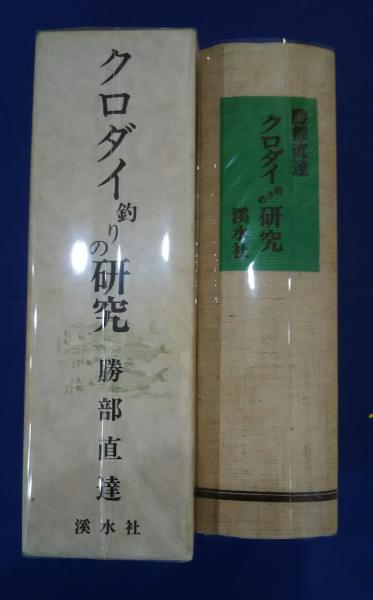 クロダイ釣りの研究
勝部直達
溪水社
勝部直達
クロダイ釣りの研究
溪水社